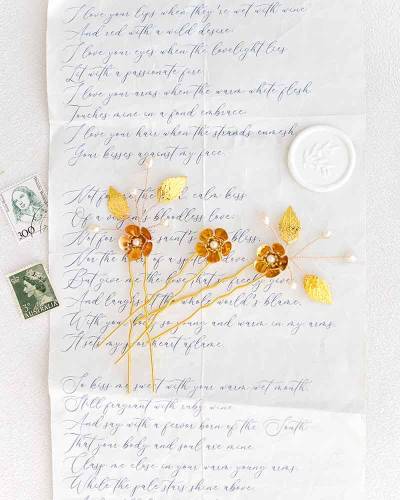 I love your lips when they're wet with wine
And red with a wild desire
I love your eyes when the lovelight lies
Lit with a passionate fire
I love your arms when the warm white flesh
Touches mine in a fond embrace
I love your hair when the strands enmesh
Your kisses against my face.
Not for the calm kiss
Of a virgin's bloodless love
Not for saint's bliss,
Nor the of a dove
But give me the love that freely
And laughs at the whole world's blame,
With your so young and warm in my arms,
It sets my heart aflame.
So kiss me sweet with your warm wet mouth,
Still fragrant with ruby wine
And say with a fervor born of the South
That your body and soul are mine.
Clasp me close in your warm young arms,
While the pale stars shine above
300
AUSTRALIA